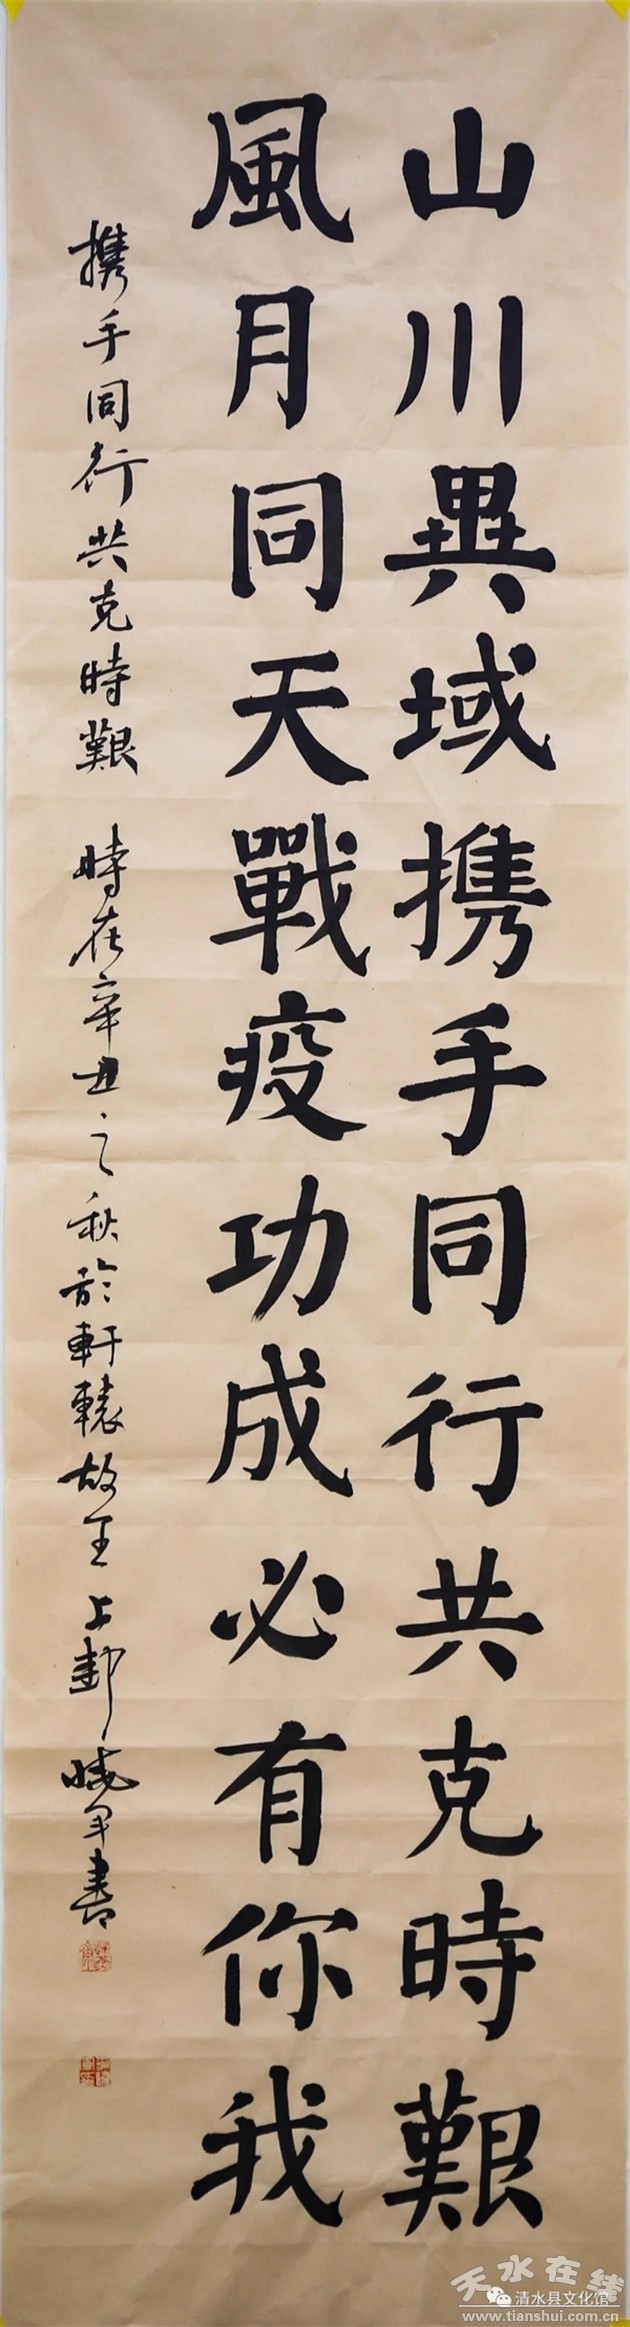 山川異域携手同行共克時艱
風月同天戰疫功成必有你我
携手同行共克時艱 時在辛丑之秋於軒轅故里上邽曉軍書
天水在线
清水县文化馆
www.tianshui.com.cn